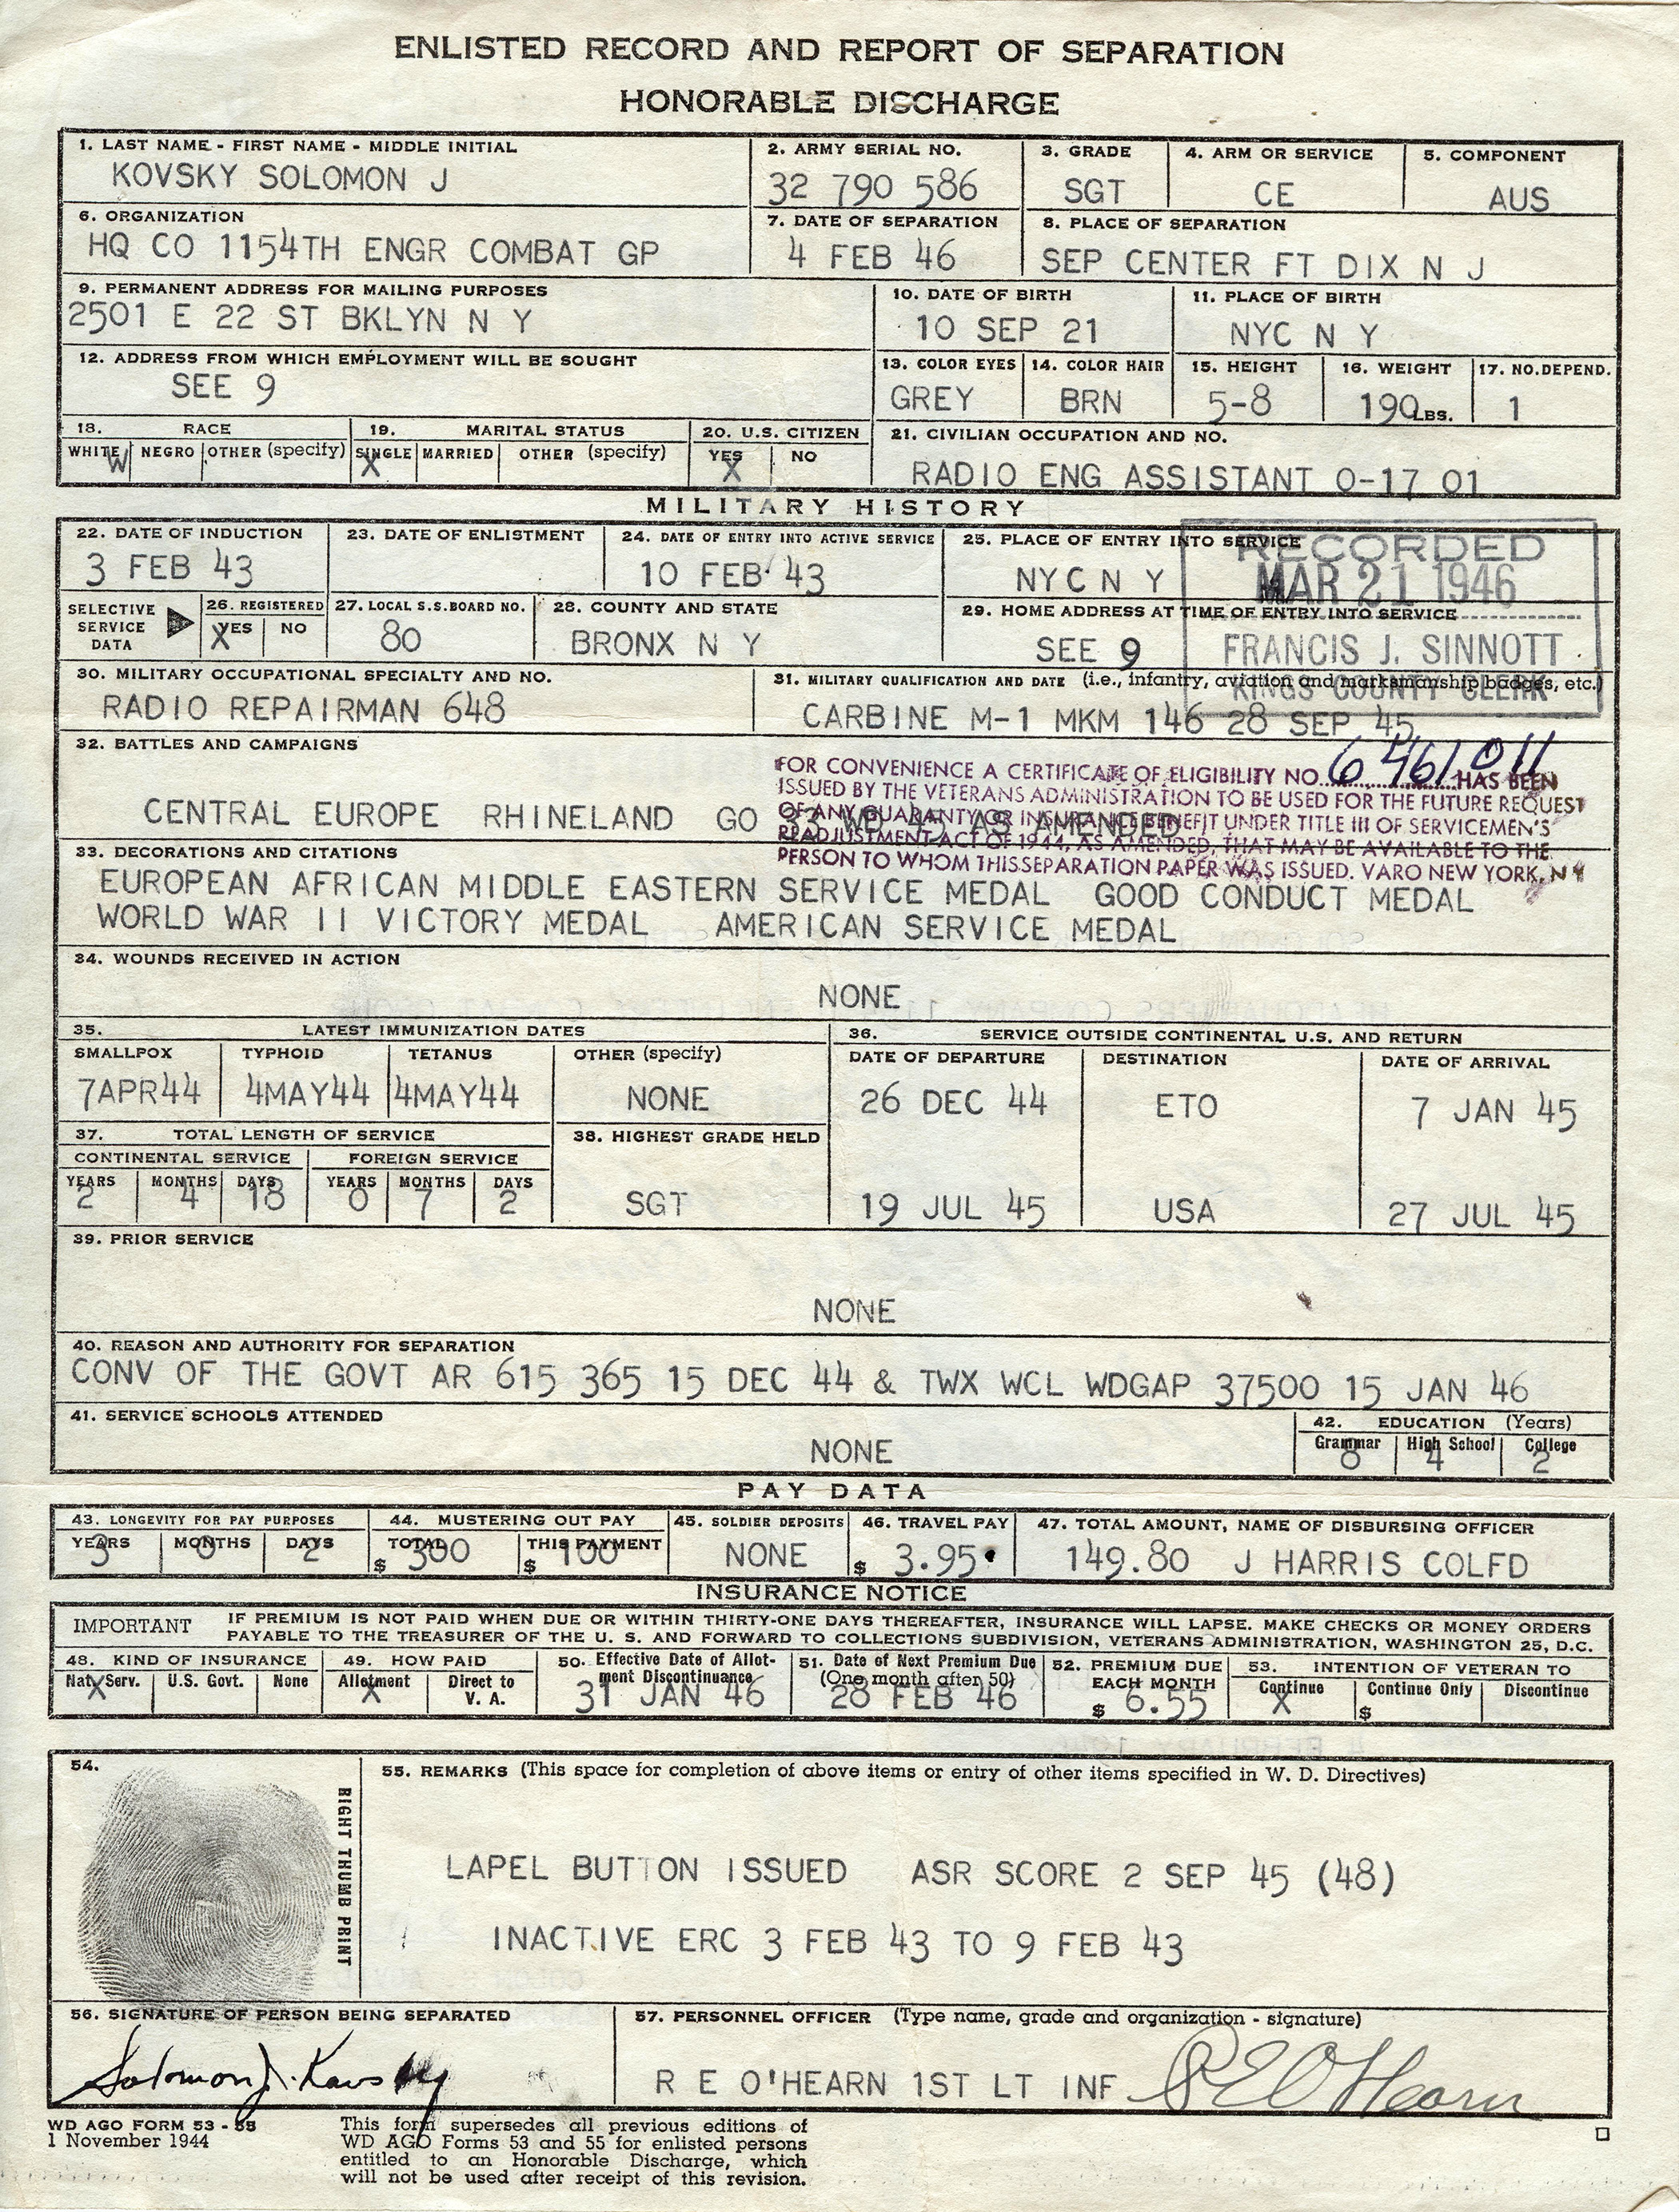 ENLISTED RECORD AND REPORT OF SEPARATION
HONORABLE DISCHARGE
1. LAST NAME - FIRST NAME - MIDDLE INITIAL
KOVSKY SOLOMON J
2. ARMY SERIAL NO.
32 790 586
3. GRADE
SGT
4. ARM OR SERVICE
CE
5. COMPONENT
AUS
6. ORGANIZATION
HQ CO 1154TH ENGR COMBAT GP
7. DATE OF SEPARATION
4 FEB 46
8. PLACE OF SEPARATION
SEP CENTER FT DIX N J
9. PERMANENT ADDRESS FOR MAILING PURPOSES
2501 E 22 ST BKLYN N Y
10. DATE OF BIRTH
10 SEP 21
11. PLACE OF BIRTH
NYC N Y
12. ADDRESS FROM WHICH EMPLOYMENT WILL BE SOUGHT
SEE 9
13. COLOR EYES
GREY
14. COLOR HAIR
BRN
15. HEIGHT
5-8
16. WEIGHT
190 LBS.
17. NO. DEPEND.
1
18. RACE
WHITE W NEGRO OTHER (specify)
19. MARITAL STATUS
SINGLE X MARRIED OTHER (specify)
20. U.S. CITIZEN
YES X NO
21. CIVILIAN OCCUPATION AND NO.
RADIO ENG ASSISTANT 0-17 01
MILITARY HISTORY
22. DATE OF INDUCTION
3 FEB 43
23. DATE OF ENLISTMENT
24. DATE OF ENTRY INTO ACTIVE SERVICE
10 FEB 43
25. PLACE OF ENTRY INTO SERVICE
NYC N Y
RECORDED
MAR 21 1946
FRANCIS J. SINNOTT
KINGS COUNTY CLERK
SELECTIVE SERVICE DATA
26. REGISTERED
YES X NO
27. LOCAL S.S. BOARD NO.
80
28. COUNTY AND STATE
BRONX N Y
29. HOME ADDRESS AT TIME OF ENTRY INTO SERVICE
SEE 9
30. MILITARY OCCUPATIONAL SPECIALTY AND NO.
RADIO REPAIRMAN 648
31. MILITARY QUALIFICATION AND DATE (i.e., infantry, aviation and marksmanship badges, etc.)
CARBINE M-1 MKM 146 28 SEP 45
32. BATTLES AND CAMPAIGNS
CENTRAL EUROPE RHINELAND GO 33 WD 45 AS AMENDED
FOR CONVENIENCE A CERTIFICATE OF ELIGIBILITY NO. 6 461 011 HAS BEEN
ISSUED BY THE VETERANS ADMINISTRATION TO BE USED FOR THE FUTURE REQUEST
OF ANY GUARANTY OR INSURANCE BENEFIT UNDER TITLE III OF SERVICEMEN'S
READJUSTMENT ACT OF 1944, AS AMENDED, THAT MAY BE AVAILABLE TO THE
PERSON TO WHOM THIS SEPARATION PAPER WAS ISSUED. VARO NEW YORK, N Y
33. DECORATIONS AND CITATIONS
EUROPEAN AFRICAN MIDDLE EASTERN SERVICE MEDAL GOOD CONDUCT MEDAL
WORLD WAR II VICTORY MEDAL AMERICAN SERVICE MEDAL
34. WOUNDS RECEIVED IN ACTION
NONE
35. LATEST IMMUNIZATION DATES
SMALLPOX TYPHOID TETANUS OTHER (specify)
7APR44 4MAY44 4MAY44 NONE
36. SERVICE OUTSIDE CONTINENTAL U.S. AND RETURN
DATE OF DEPARTURE DESTINATION DATE OF ARRIVAL
26 DEC 44 ETO 7 JAN 45
19 JUL 45 USA 27 JUL 45
37. TOTAL LENGTH OF SERVICE
CONTINENTAL SERVICE FOREIGN SERVICE
YEARS MONTHS DAYS YEARS MONTHS DAYS
2 4 18 0 7 2
38. HIGHEST GRADE HELD
SGT
39. PRIOR SERVICE
NONE
40. REASON AND AUTHORITY FOR SEPARATION
CONV OF THE GOVT AR 615 365 15 DEC 44 & TWX WCL WDGAP 37500 15 JAN 46
41. SERVICE SCHOOLS ATTENDED
NONE
42. EDUCATION (Years)
Grammar High School College
8 4 2
PAY DATA
43. LONGEVITY FOR PAY PURPOSES
YEARS MONTHS DAYS
3 0 2
44. MUSTERING OUT PAY
TOTAL THIS PAYMENT
$ 300 $ 100
45. SOLDIER DEPOSITS
NONE
46. TRAVEL PAY
$ 3.95
47. TOTAL AMOUNT, NAME OF DISBURSING OFFICER
149.80 J HARRIS COLFD
INSURANCE NOTICE
IMPORTANT
IF PREMIUM IS NOT PAID WHEN DUE OR WITHIN THIRTY-ONE DAYS THEREAFTER, INSURANCE WILL LAPSE. MAKE CHECKS OR MONEY ORDERS
PAYABLE TO THE TREASURER OF THE U. S. AND FORWARD TO COLLECTIONS SUBDIVISION, VETERANS ADMINISTRATION, WASHINGTON 25, D.C.
48. KIND OF INSURANCE
Nat. Serv. X U.S. Govt. None
49. HOW PAID
Allotment X Direct to V. A.
50. Effective Date of Allotment Discontinuance
31 JAN 46
51. Date of Next Premium Due (One month after 50)
28 FEB 46
52. PREMIUM DUE EACH MONTH
$ 6.55
53. INTENTION OF VETERAN TO
Continue X Continue Only $ Discontinue
54.
RIGHT THUMB PRINT
55. REMARKS (This space for completion of above items or entry of other items specified in W. D. Directives)
LAPEL BUTTON ISSUED ASR SCORE 2 SEP 45 (48)
INACTIVE ERC 3 FEB 43 TO 9 FEB 43
56. SIGNATURE OF PERSON BEING SEPARATED
Solomon J. Kovsky
57. PERSONNEL OFFICER (Type name, grade and organization - signature)
R E O'HEARN 1ST LT INF R E O'Hearn
WD AGO FORM 53 - 55
1 November 1944
This form supersedes all previous editions of
WD AGO Forms 53 and 55 for enlisted persons
entitled to an Honorable Discharge, which
will not be used after receipt of this revision.